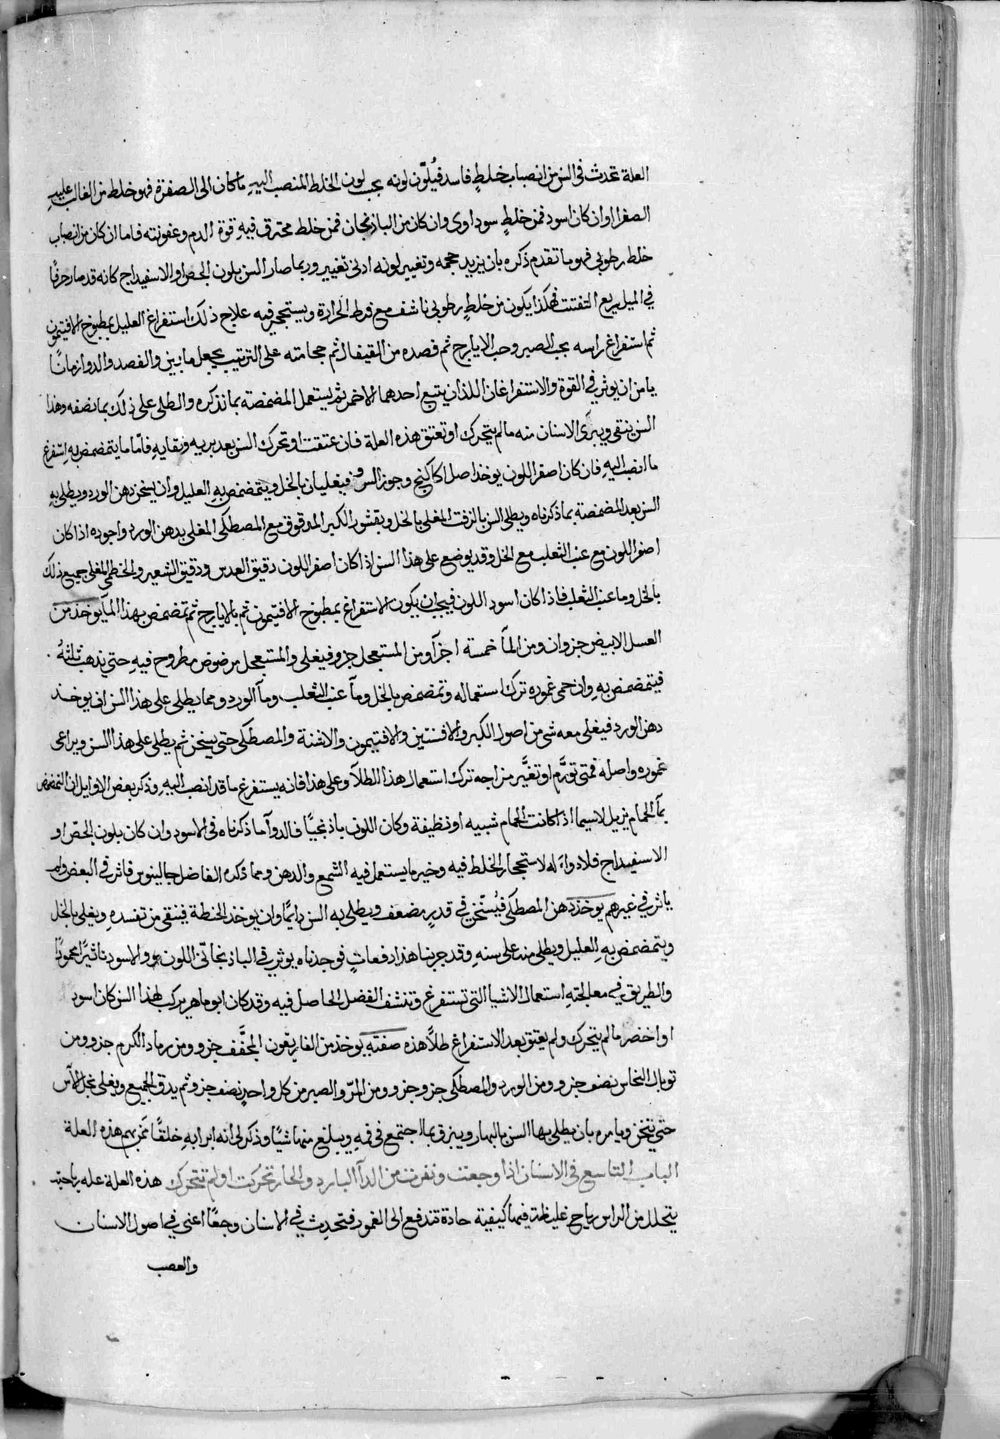 العلة تحدث في السن من انصباب خلطٍ فاسد فيُلوّن لونه بحسب لون الخلط المنصب اليه ما كان الى الصفرة فهو خلط من الغالب عليه
الصفرا وان كان اسود فمن خلطٍ سوداوى وان كان بين الباذنجان فمن خلط محترق فيه قوة الدم وعفونته فاما ان كان من انصباب
خلط رطوبى فهو ما تقدم ذكره بان يزيد حجمه وتغيير لونه ادنى تغيير وربما صار السن بلون الجص او الاسفيداج كانه قد صار خزفًا
في الميل يريع التفتت فهكذا يكون من خلطٍ رطوبى ناشف مع فرط الحرارة ويستحجر فيه علاج ذلك استفراغ العليل بمطبوخ الافتيمون
ثم استفراغ راسه بحب الصبر وحب الايارج ثم فصده من القيفال ثم حجامته على الترتيب يجعل ما بين والفصد والدوا زمانًا
يامن ان يوثر في القوة والاستفراغان اللذان يتبع احدهما الاخر ثم يستعمل المضمضة بما نذكره والطلى على ذلك بما نصفه وهذا
السن ينقى ويبرى الاسنان منه مالم يتحرك او تعتق هذه العلة فان عتقت او تحرك السن بعد بريه ونقايه فاما ما يتمضمض به استفرغ
ما انصب اليه فان كان اصفر اللون يوخذ اصل الكاكنج وجوز السرو فيغليان بالخل ويتمضمض به العليل وان يسخن دهن الورد ويطلى به
السن بعد المضمضة بما ذكرناه ويطلى السن بالزفت المغلى بالخل وبقشور الكبر المدقوق مع المصطكى المغلى بدهن الورد واجوده اذا كان
اصفر اللون مع عنب الثعلب مع الخل وقد يوضع على هذا السن اذا كان اصفر اللون دقيق العدس ودقيق الشعير والخطمى المغلى جميع ذلك
بالخل وما عنب الثعلب فاذا كان اسود اللون فيجب ان يكون الاستفراغ بمطبوخ الافتيمون ثم بالايارج ثم تمضمض بهذا المآ يوخذ من
العسل الابيض جزوان ومن المآ خمسة اجزآ ومن المستعجل جزو فيغلى والمستعجل مرضوض مطروح فيه حتى يذهب ثلثهُ
فيتمضمض به وان حمى عموره ترك استعماله وتمضمض بالخل ومآ عنب الثعلب ومآ الورد ومما يطلى على هذا السن ان يوخذ
دهن الورد فيغلى معه شى من اصول الكبر والافسنتين والافتيمون والاشنة والمصطكى حتى يسخن ثم يطلى على هذا السن ويراعى
عموره واصله فمتى تورّم او تغيّر مزاجه ترك استعمال هذا الطلآ وعلى هذا فانه يستفرغ ما قد انصب اليه وذكر بعض الاوايل ان التمضمض
بمآ الحمام يزيل لاسيما اذا كانت الحمام شبيه او نظيفة وكان اللون باذنجيًا فالدوآ ما ذكرناه في الاسود وان كان بلون الجصّ او
الاسفيداج فلا دوآ له لاستحجار الخلط فيه وخير ما يستعمل فيه الشمع والدهن ومما ذكره الفاضل جالينوس فاثر في البعض ولم
ياثر في غيرهم يوخذ دهن المصطكى فيُسخن في قدرٍ مضعف ويطلى به السن دايمًا وان يوخذ الحنطة فينقى من تفسده ويغلى بالخل
ويتمضمض به العليل ويطلى منه على سنه وقد جربنا هذا دفعاتٍ فوجدناه يوثر في الباذنجانى اللون والاسود تاثيرًا محمودًا
والطريق في معالجته استعمال الاشيا التى تستفرغ وتنشف الفضل الحاصل فيه وقد كان ابو ماهر يركب لهذا السن كان اسود
او اخضر مالم يتحرك ولم يعتق بعد الاستفراغ طلآً هذه صفته يوخذ من الغاريقون المجفّف جزو ومن رماد الكرم جزو ومن
توبال النحاس نصف جزو ومن الورد والمصطكى جزو جزو ومن المرّ والصبر من كل واحدٍ نصف جزو ثم يدق الجميع ويغلى بخل الآس
حتى يثخن ويامره بان يطلى بها السن بالنهار ويبزق بما اجتمع في فيه ويبلع منها شيًا وذكر لى انه ابرا به خلقًا ممن بهم هذه العلة
الباب التاسع في الاسنان اذا وجعت ونفرت من الدآ البارد والحار تحركت او لم تتحرك هذه العلة علة رياحيّة
يتحلل من الراس رياح غليظة فيها كيفية حادة تندفع الى العمور فتحدث في الاسنان وجعًا اعنى في اصول الاسنان
والعصب